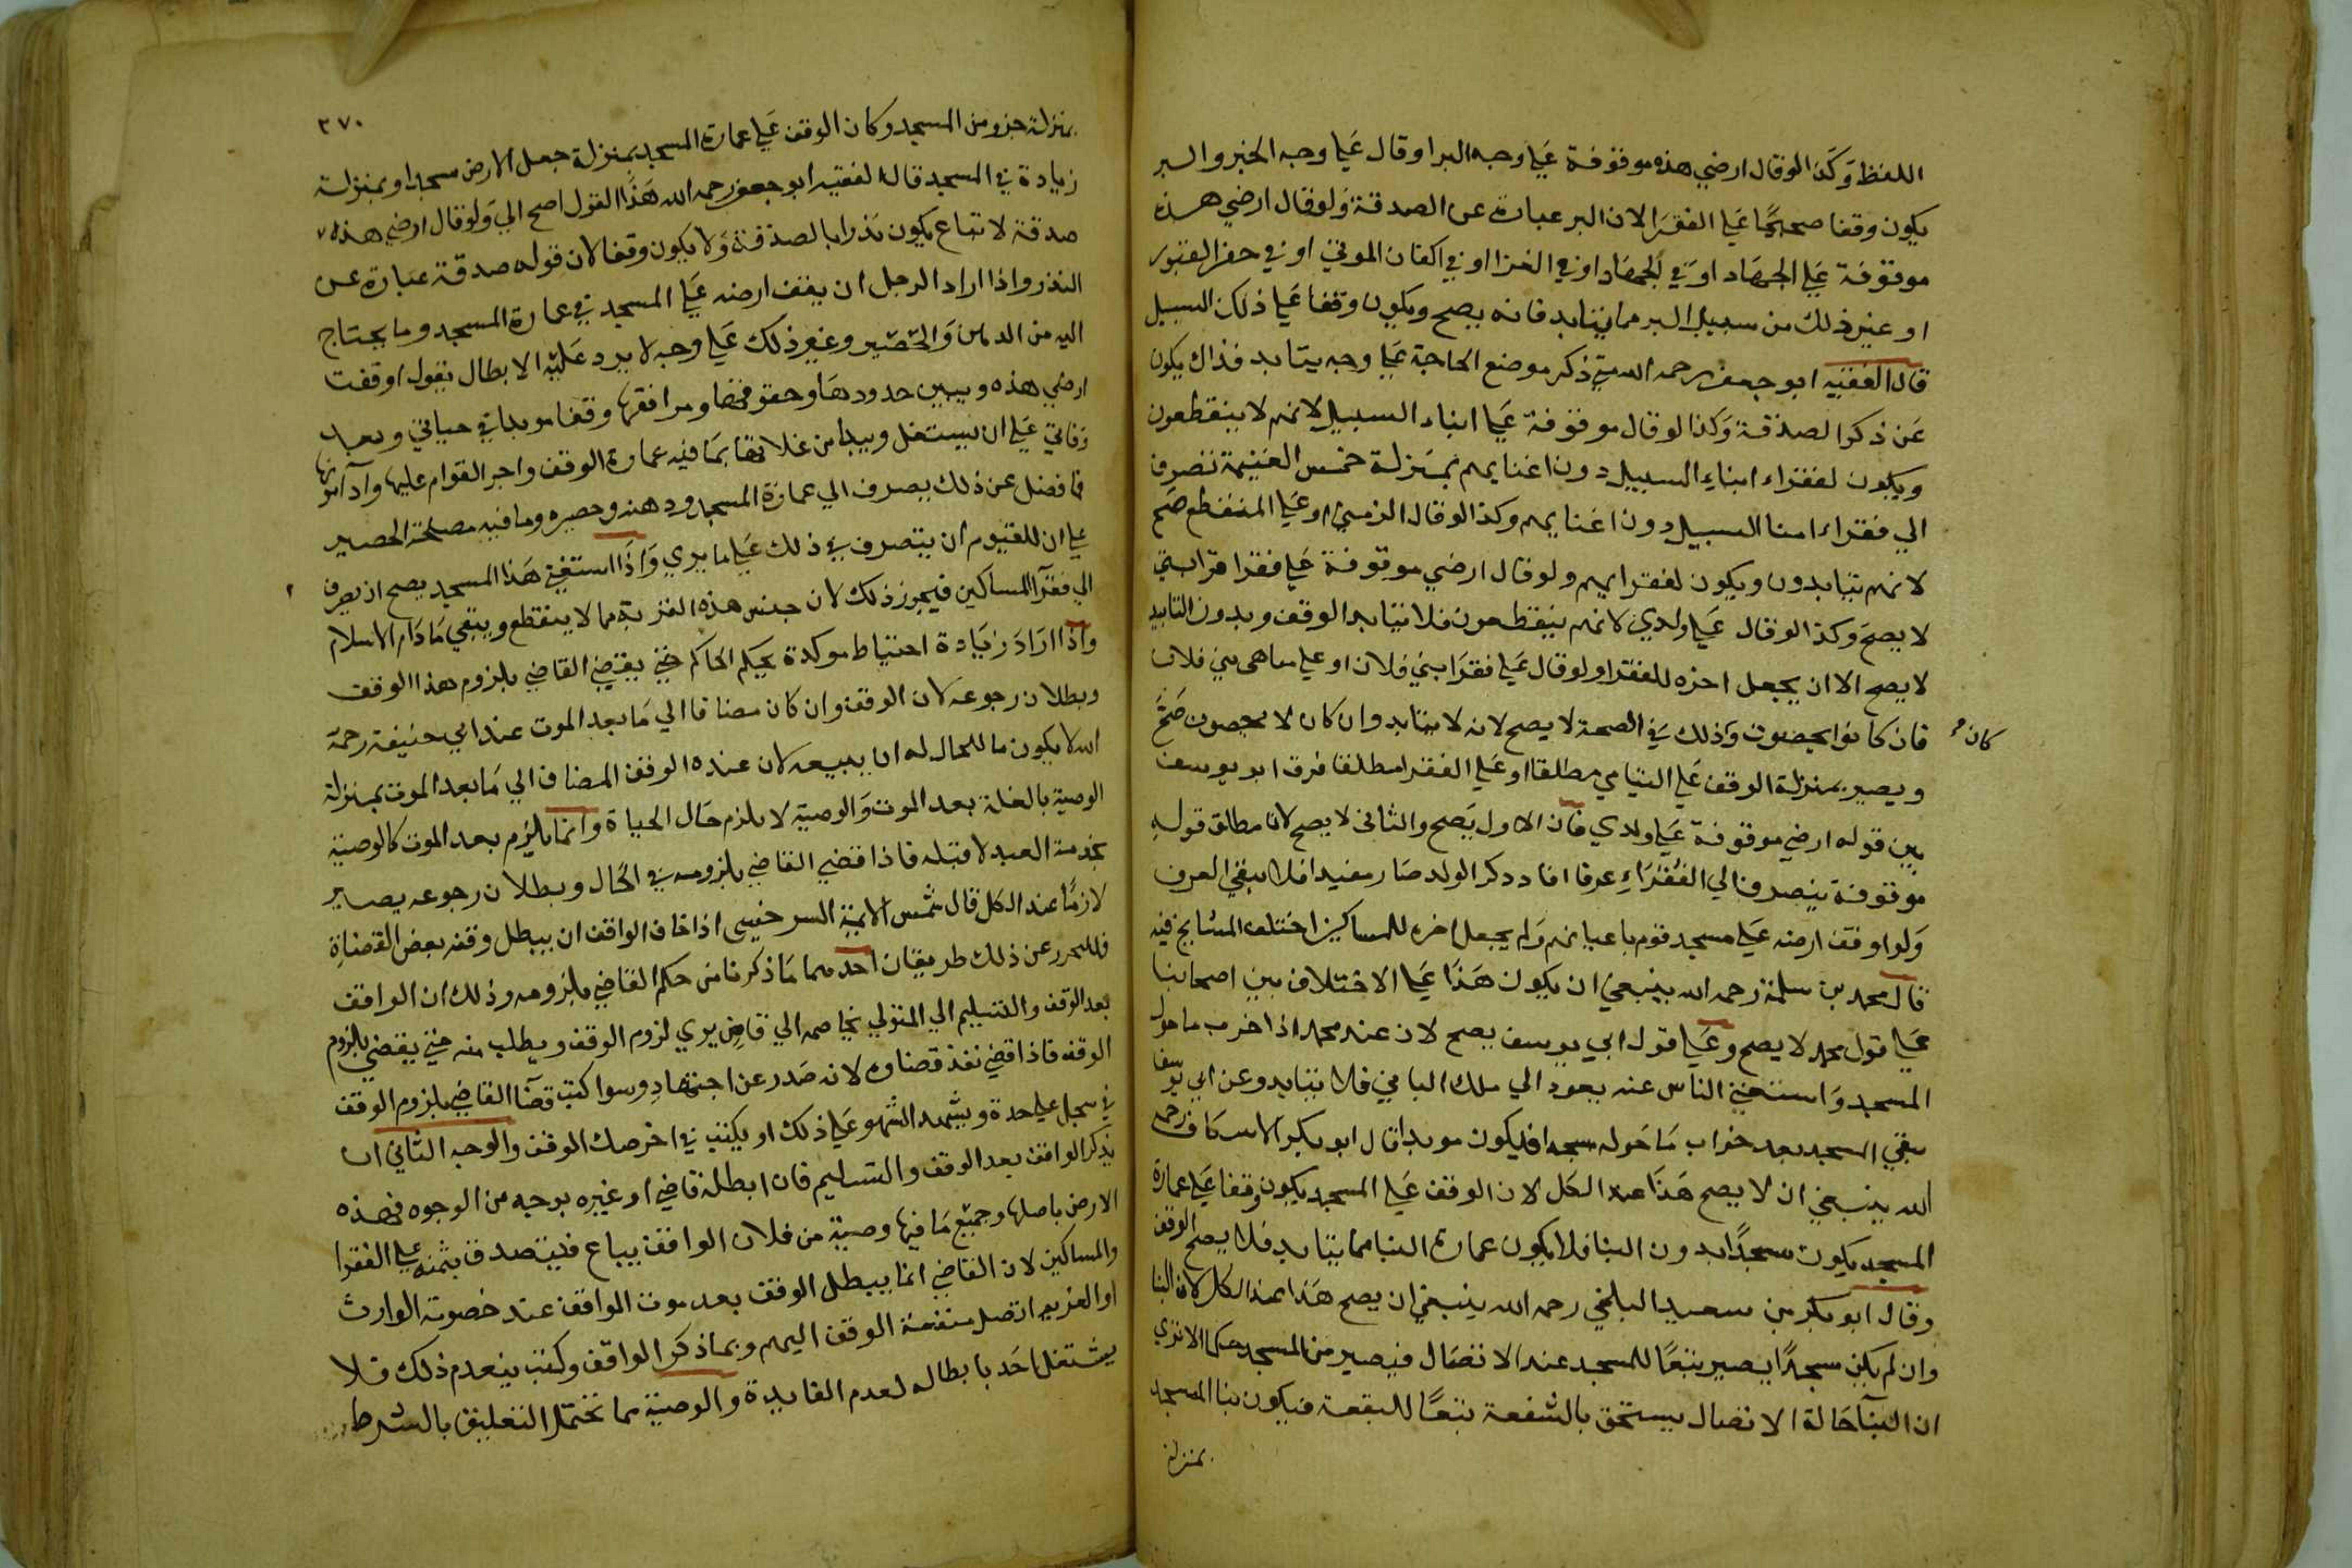 اللفظ وكذا لو قال ارضي هذه موقوفة علي وجه البر او قال علي وجه الخير والبر
يكون وقفا صحيحًا علي الفقرا لان البر عبارة عن الصدقة ولو قال ارضي هذه
موقوفة علي الجهاد او في الجهاد او في الغزا او في اكفان الموتي او في حفر القبور
او غير ذلك من سبيل البر مما يتابد فانه يصح ويكون وقفا علي ذلك السبيل
قال الفقيه ابو جعفر رحمه الله متي ذكر موضع الحاجة علي وجه يتابد فذاك يكون
عن ذكر الصدقة وكذا لو قال موقوفة علي ابناء السبيل لانهم لا ينقطعون
ويكون لفقراء ابناء السبيل دون اغنيايهم بمنزلة خمس الغنيمة تصرف
الي فقراء ابنا السبيل دون اغنيايهم وكذا لو قال الزمني او علي المنقطع صح
لانهم يتابدون ويكون لفقرايهم ولو قال ارضي موقوفة علي فقرا قرابتي
لا يصح وكذا لو قال علي ولدي لانهم ينقطعون فلا يتابد الوقف وبدون التابيد
لا يصح الا ان يجعل اخره للفقرا ولو قال علي فقرا بني فلان او علي يتامي بني فلان
فان كانوا يحصون وذلك في الصحة لا يصح لانه لا يتابد وان كان لا يحصون صح
كان
ويصير بمنزلة الوقف علي اليتامي مطلقا او علي الفقرا مطلقا فرق ابو يوسف
بين قوله ارضي موقوفة علي ولدي فان الاول يصح والثاني لا يصح لان مطلق قوله
موقوفة ينصرف الي الفقراء عرفا فاذا ذكر الولد صار مقيدا فلا يبقي العرف
ولو اوقف ارضه علي مسجد قوم باعيانهم ولم يجعل اخره للمساكين اختلف المشايخ فيه
قال محمد بن سلمة رحمه الله ينبغي ان يكون هذا علي الاختلاف بين اصحابنا
علي قول محمد لا يصح وعلي قول ابي يوسف يصح لان عند محمد اذا خرب ما حول
المسجد واستغني الناس عنه يعود الي ملك الباني فلا يتابد وعن ابي يوسف
يبقي المسجد بعد خراب ما حوله مسجدا فيكون موبدا قال ابو بكر الاسكاف رحمه
الله ينبغي ان لا يصح هذا عند الكل لان الوقف علي المسجد يكون وقفا علي عمارة
المسجد يكون مسجدًا بدون البنا فلا يكون عمارة البنا مما يتابد فلا يصح الوقف
وقال ابو بكر بن سعيد البلخي رحمه الله ينبغي ان يصح هذا عند الكل لان البنا
وان لم يكن مسجدًا يصير تبعًا للمسجد عند الاتصال فيصير من المسجد حكما الا تري
ان البنا حالة الاتصال يستحق بالشفعة تبعًا للبقعة فيكون بنا المسجد
بمنزلة
٣٧٠
بمنزلة جزو من المسجد وكان الوقف علي عمارة المسجد بمنزلة جعل الارض مسجدا او بمنزلة
زيادة في المسجد قال الفقيه ابو جعفر رحمه الله هذا القول اصح الي ولو قال ارضي هذه
صدقة لا تباع يكون نذرا بالصدقة ولا يكون وقفا لان قوله صدقة عبارة عن
النذر واذا اراد الرجل ان يقف ارضه علي المسجد في عمارة المسجد وما يحتاج
اليه من الدهن والحصير وغير ذلك علي وجه لا يرد عليه الابطال يقول اوقفت
ارضي هذه ويبين حدودها وحقوقها ومرافقها وقفا موبدا في حياتي وبعد
وفاتي علي ان يستغل ويبدا من غلاتها بما فيه عمارة الوقف واجر القوام عليها
فما فضل عن ذلك يصرف الي عمارة المسجد ودهنه وحصيره وما فيه مصلحة الحصير
علي ان للقيوم ان يتصرف في ذلك علي ما يري واذا استغني هذا المسجد يصح ان يصرف
الي فقرآ المساكين فيجوز ذلك لان جنس هذه القربة مما لا ينقطع ويبقي ما دام الاسلام
واذا اراد زيادة احتياط موكدة بحكم الحاكم حتي يقضي القاضي بلزوم هذا الوقف
وبطلان رجوعه لان الوقف وان كان مضافا الي ما بعد الموت عند ابي حنيفة رحمة
الله لا يكون ما للحال له ان يبيعه لان عنده الوقف المضاف الي ما بعد الموت بمنزلة
الوصية بالغلة بعد الموت والوصية لا يلزم حال الحياة وانما يلزم بعد الموت كالوصية
بخدمة العبد لا قبله فاذا قضي القاضي بلزومه في الحال وبطلان رجوعه يصير
لازمًا عند الكل قال شمس الايمة السرخسي اذا خاف الواقف ان يبطل وقفه بعض القضاة
فللتحرر عن ذلك طريقان احدهما ما ذكرنا من حكم القاضي بلزومه وذلك ان الواقف
بعد الوقف والتسليم الي المتولي يخاصمه الي قاض يري لزوم الوقف ويطلب منه حتي يقضي بلزوم
الوقف فاذا قضي نفذ قضاوه لانه صدر عن اجتهاد وسوا كتب قضآ القاضي بلزوم الوقف
في سجل علي حدة ويشهد الشهود علي ذلك او يكتب في اخر صك الوقف والوجه الثاني ان
يذكر الواقف بعد الوقف والتسليم فان ابطله قاضي او غيره بوجه من الوجوه فهذه
الارض باصلها وجميع ما فيها وصية من فلان الواقف يباع فيتصدق بثمنه علي الفقرا
والمساكين لان القاضي انما يبطل الوقف بعد موت الواقف عند خصومة الوارث
او الغريم اتصل منفعة الوقف اليهم وبما ذكر الواقف وكتب ينعدم ذلك فلا
يشتغل احد بابطاله لعدم الفايدة والوصية مما تحتمل التعليق بالشرط